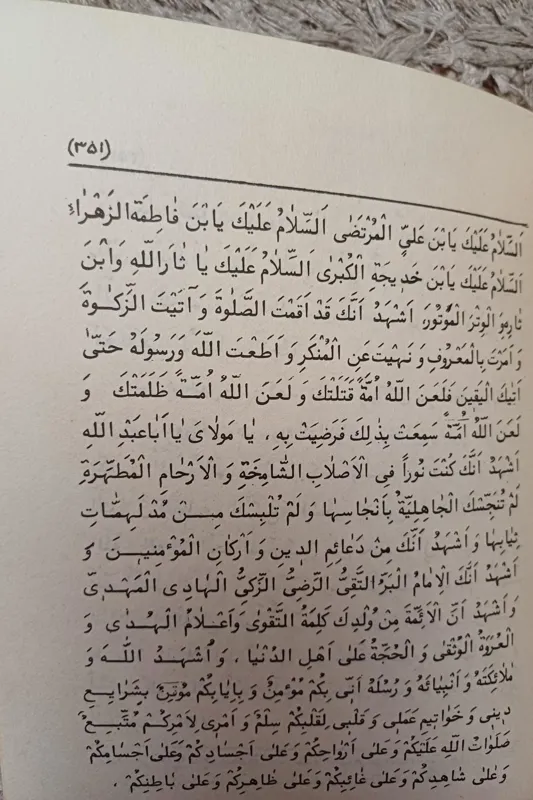 (۳۵۱)
اَلسَّلامُ عَلَيْكَ يَابْنَ عَلِيٍّ الْمُرْتَضٰى اَلسَّلامُ عَلَيْكَ يَابْنَ فاطِمَةَ الزَهْراءِ
اَلسَّلامُ عَلَيْكَ يَابْنَ خَديجَةِ الْكُبْرٰى اَلسَّلامُ عَلَيْكَ يٰا ثٰارَاللّهِ وَابْنَ
ثارِهِوَ الْوِتْرَ الْمَوْتُورَ، اَشْهَدُ اَنَّكَ قَدْ اَقَمْتَ الصَّلٰوةَ وَ آتَيْتَ الزَّكٰوةَ
وَ اَمَرْتَ بِالْمَعْرُوفِ وَ نَهَيْتَ عَنِ الْمُنْكَرِ وَ اَطَعْتَ اللّهَ وَرَسُولَهُ حَتّىٰ
اَتٰيكَ الْيَقينَ فَلَعَنَ اللّهُ اُمَّةً قَتَلَتْكَ وَ لَعَنَ اللّهُ اُمَّةً ظَلَمَتْكَ وَ
لَعَنَ اللّهُ اُمَّةً سَمِعَتْ بِذٰلِكَ فَرَضِيَتْ بِهِ، يٰا مَوْلاىَ يٰا اَباعَبْدِ اللّهِ
اَشْهَدُ اَنَّكَ كُنْتَ نُوراً فِى الْاَصْلابِ الشّامِخَةِ وَ الْاَرْحامِ الْمُطَهَّرَةِ
لَمْ تُنَجِّسْكَ الْجاهِلِيَّةُ بِاَنْجاسِها وَ لَمْ تُلْبِسْكَ مِنْ مُدْلَهِمّاتِ
ثِيابِها وَ اَشْهَدُ اَنَّكَ مِنْ دَعائِمِ الدينِ وَ اَرْكانِ الْمُؤْمِنينَ وَ
اَشْهَدُ اَنَّكَ الْاِمامُ الْبَرُّ التَّقِىُّ الرَّضِىُّ الزَّكِىُّ الْهادِى الْمَهْدِىُّ
وَ اَشْهَدُ اَنَّ الْاَئِمَّةَ مِنْ وُلْدِكَ كَلِمَةُ التَّقْوٰى وَاَعْلامُ الْهُدٰى وَ
الْعُرْوَةُ الْوُثْقٰى وَ الْحُجَّةُ عَلٰى اَهْلِ الدُنْيٰا، وَ اُشْهِدُ اللّٰهَ وَ
مَلائِكَتَهُ وَ اَنْبِيائَهُ وَ رُسُلَهُ اَنّى بِكُمْ مُؤْمِنٌ وَ بِاِيابِكُمْ مُوقِنٌ بِشَرايِعِ
دينى وَ خَواتيمِ عَمَلى وَ قَلْبى لِقَلْبِكُمْ سِلْمٌ وَ اَمْرى لِاَمْرِكُمْ مُتَّبِعٌ
صَلَواتُ اللّهِ عَلَيْكُمْ وَعَلٰى اَرْواحِكُمْ وَعَلٰى اَجْسادِكُمْ وَعَلٰى اَجْسامِكُمْ
وَ عَلٰى شاهِدِكُمْ وَعَلٰى غائِبِكُمْ وَعَلٰى ظاهِرِكُمْ وَعَلٰى باطِنِكُمْ.